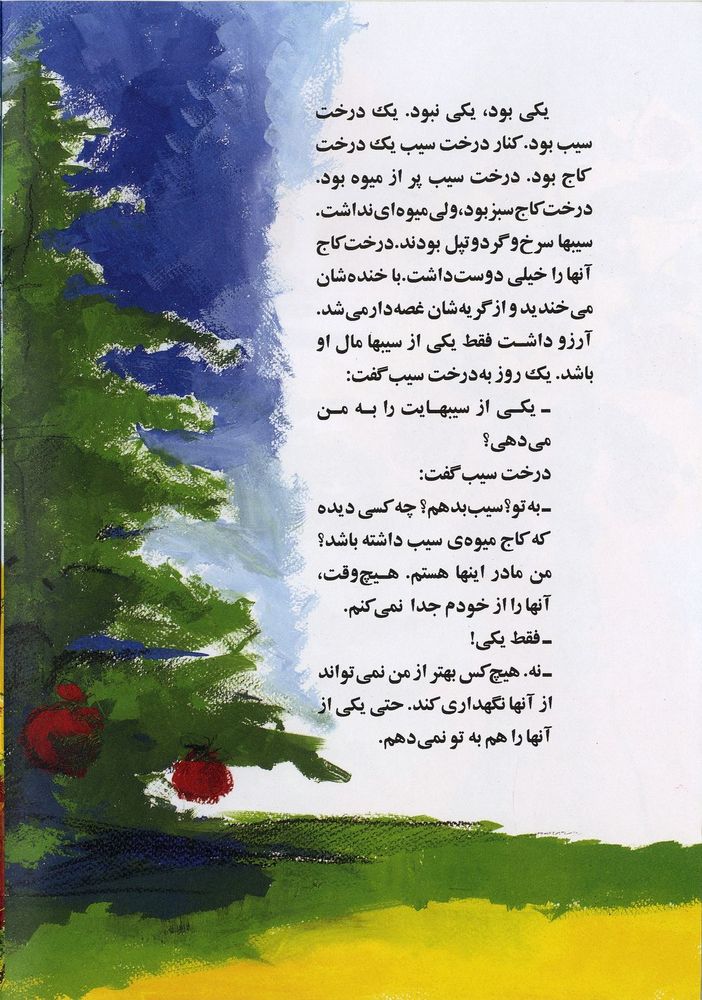 یکی بود، یکی نبود. یک درخت
سیب بود. کنار درخت سیب یک درخت
کاج بود. درخت سیب پر از میوه بود.
درخت کاج سبز بود، ولی میوه‌ای نداشت.
سیبها سرخ و گرد و تپل بودند. درخت کاج
آنها را خیلی دوست داشت. با خنده‌شان
می‌خندید و از گریه‌شان غصه‌دار می‌شد.
آرزو داشت فقط یکی از سیبها مال او
باشد. یک روز به درخت سیب گفت:
ـ یکی از سیبهایت را به من
می‌دهی؟
درخت سیب گفت:
ـ به تو؟ سیب بدهم؟ چه کسی دیده
که کاج میوه‌ی سیب داشته باشد؟
من مادر اینها هستم. هیچ‌وقت،
آنها را از خودم جدا نمی‌کنم.
ـ فقط یکی!
ـ نه. هیچ‌کس بهتر از من نمی‌تواند
از آنها نگهداری کند. حتی یکی از
آنها را هم به تو نمی‌دهم.